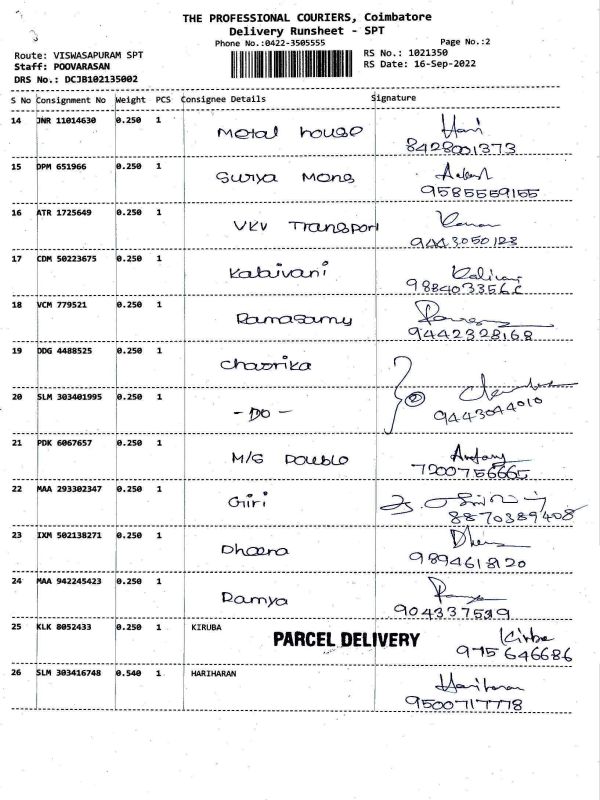 THE PROFESSIONAL COURIERS, Coimbatore
Delivery Runsheet - SPT
Phone No.:0422-3505555 Page No.:2
Route: VISWASAPURAM SPT RS No.: 1021350
Staff: POOVARASAN RS Date: 16-Sep-2022
DRS No.: DCJB102135002
S No Consignment No Weight PCS Consignee Details Signature
14 JNR 11014630 0.250 1 Metal house Hari
8428001373
15 DPM 651966 0.250 1 Surya Mons
9585559155
16 ATR 1725649 0.250 1 VKV Transport
9443050128
17 CDM 50223675 0.250 1 Kalaivani
988403356
18 VCM 779521 0.250 1 Ramasamy
9442328168
19 DDG 4488525 0.250 1 Charrika
20 SLM 303401995 0.250 1 - DO - 2
9443044010
21 PDK 6067657 0.250 1 M/S Double Antony
7200756665
22 MAA 293302347 0.250 1 Giri
8870389408
23 IXM 502138271 0.250 1 Dheena
9894618120
24 MAA 942245423 0.250 1 Ramya
904337519
25 KLK 8052433 0.250 1 KIRUBA PARCEL DELIVERY Kirba
975646686
26 SLM 303416748 0.540 1 HARIHARAN Hariharan
9500717778